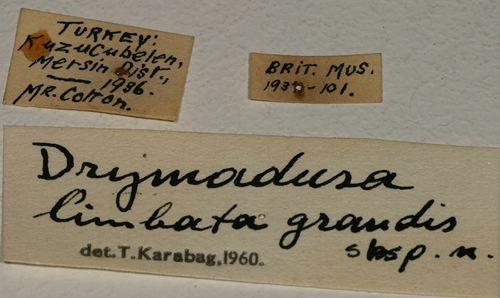 TURKEY:
Kuzucubelen,
Mersin Dist.,
— 1936.
Mr. Cotton.
BRIT. MUS.
193 -101.
Drymadusa
limbata grandis
sbsp. n.
det. T. Karabag, 1960.